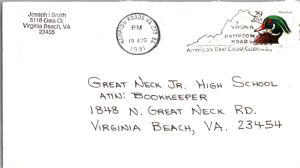 Joseph I Smith
5118 Gala Ct.
Virginia Beach, VA
23455
HAMPTON ROADS VA
PM
19 AUG
1991
29
VIRGINIA
HAMPTON
ROADS
America's East Coast Gateway
GREAT NECK JR. HIGH SCHOOL
ATTN: BOOKKEEPER
1848 N. GREAT NECK RD.
VIRGINIA BEACH, VA. 23454